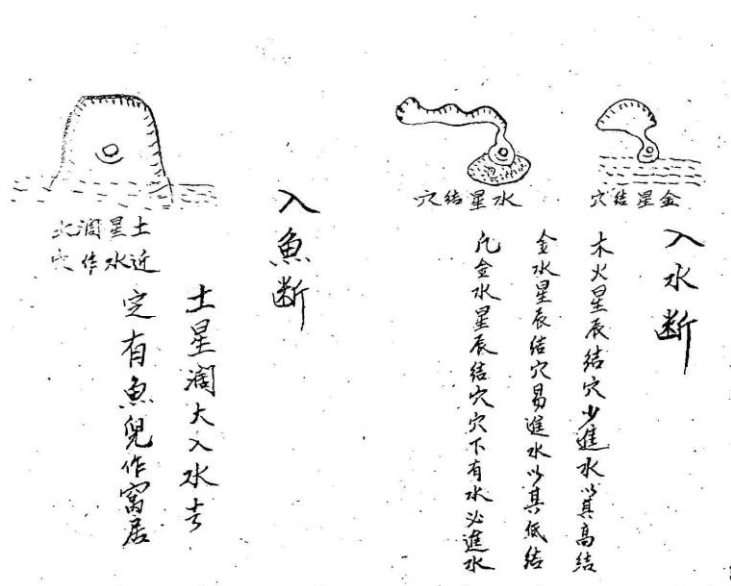 入水断
金星结穴
水星结穴
木火星辰结穴少進水以其高结
金水星辰结穴易進水以其低结
凡金水星辰结穴穴下有水必進水
入魚断
土星濶大入水去
定有魚兒作窩居
土星濶
近水作穴